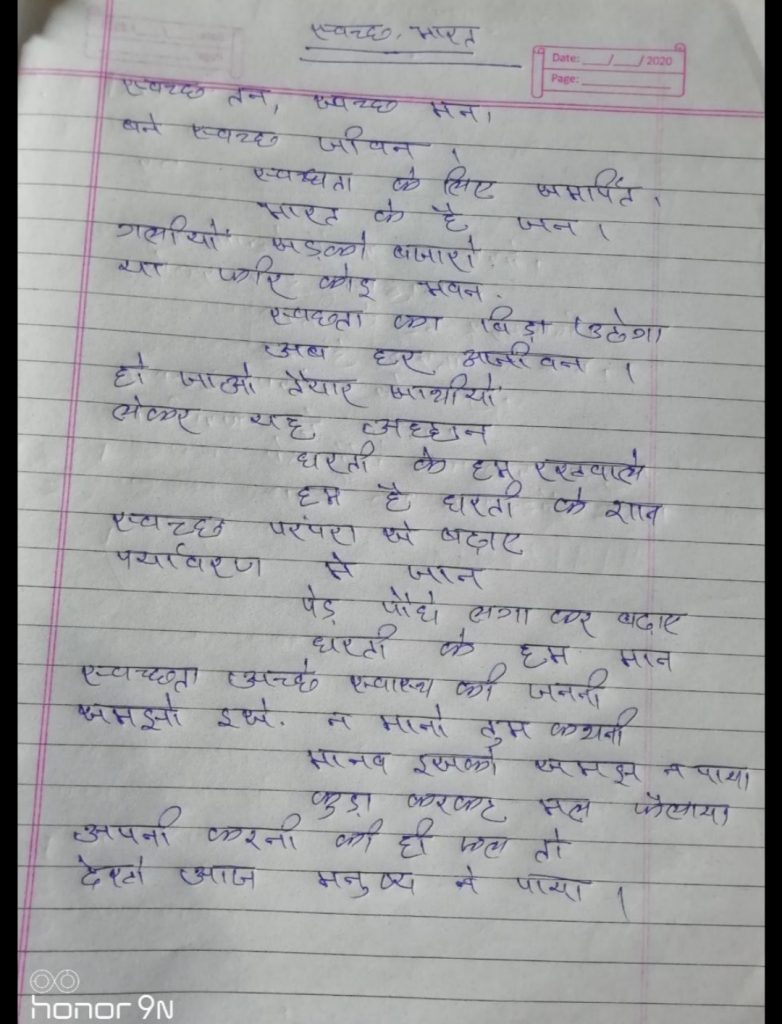 स्वच्छ भारत
Date: __/__/2020
Page: ______
स्वच्छ तन, स्वच्छ मन।
बने स्वच्छ जीवन।
स्वच्छता के लिए समर्पित।
भारत के है जन।
गलीयों सड़को बाजारो
या फिर कोइ भवन.
स्वच्छता का बिड़ा उठेगा
अब हर आजीवन।
हो जाओ तैयार साथीयों
लेकर यह
धरती के हम रखवाले
हम है धरती के शान
स्वच्छ परंपरा से बढ़ाए
पर्यावरण मे जान
पेड़ पौधे लगा कर बढ़ाए
धरती के हम मान
स्वच्छता अच्छे स्वास्थ की जननी
समझो इसे. न मानो तुम कथनी
मानव इसको समझ न पाया
कुड़ा करकट मल फैलाया
अपनी करनी की ही फल तो
देखो आज मनुष्य ने पाया।
honor 9N